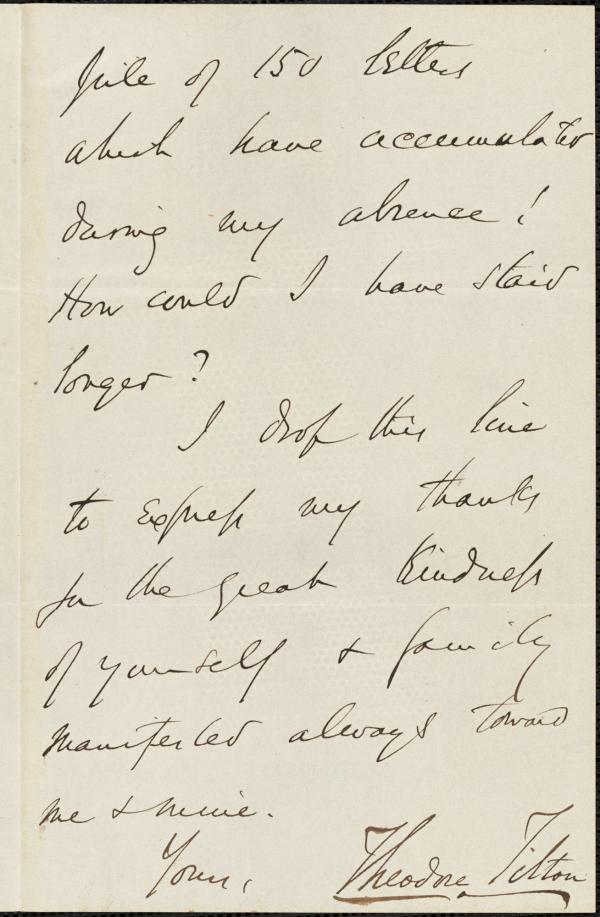 pile of 150 letters
which have accumulated
during my absence!
How could I have staid
longer?
I drop this line
to express my thanks
for the great kindness
of yourself & family
manifested always toward
me & mine.
Yours,
Theodore Tilton